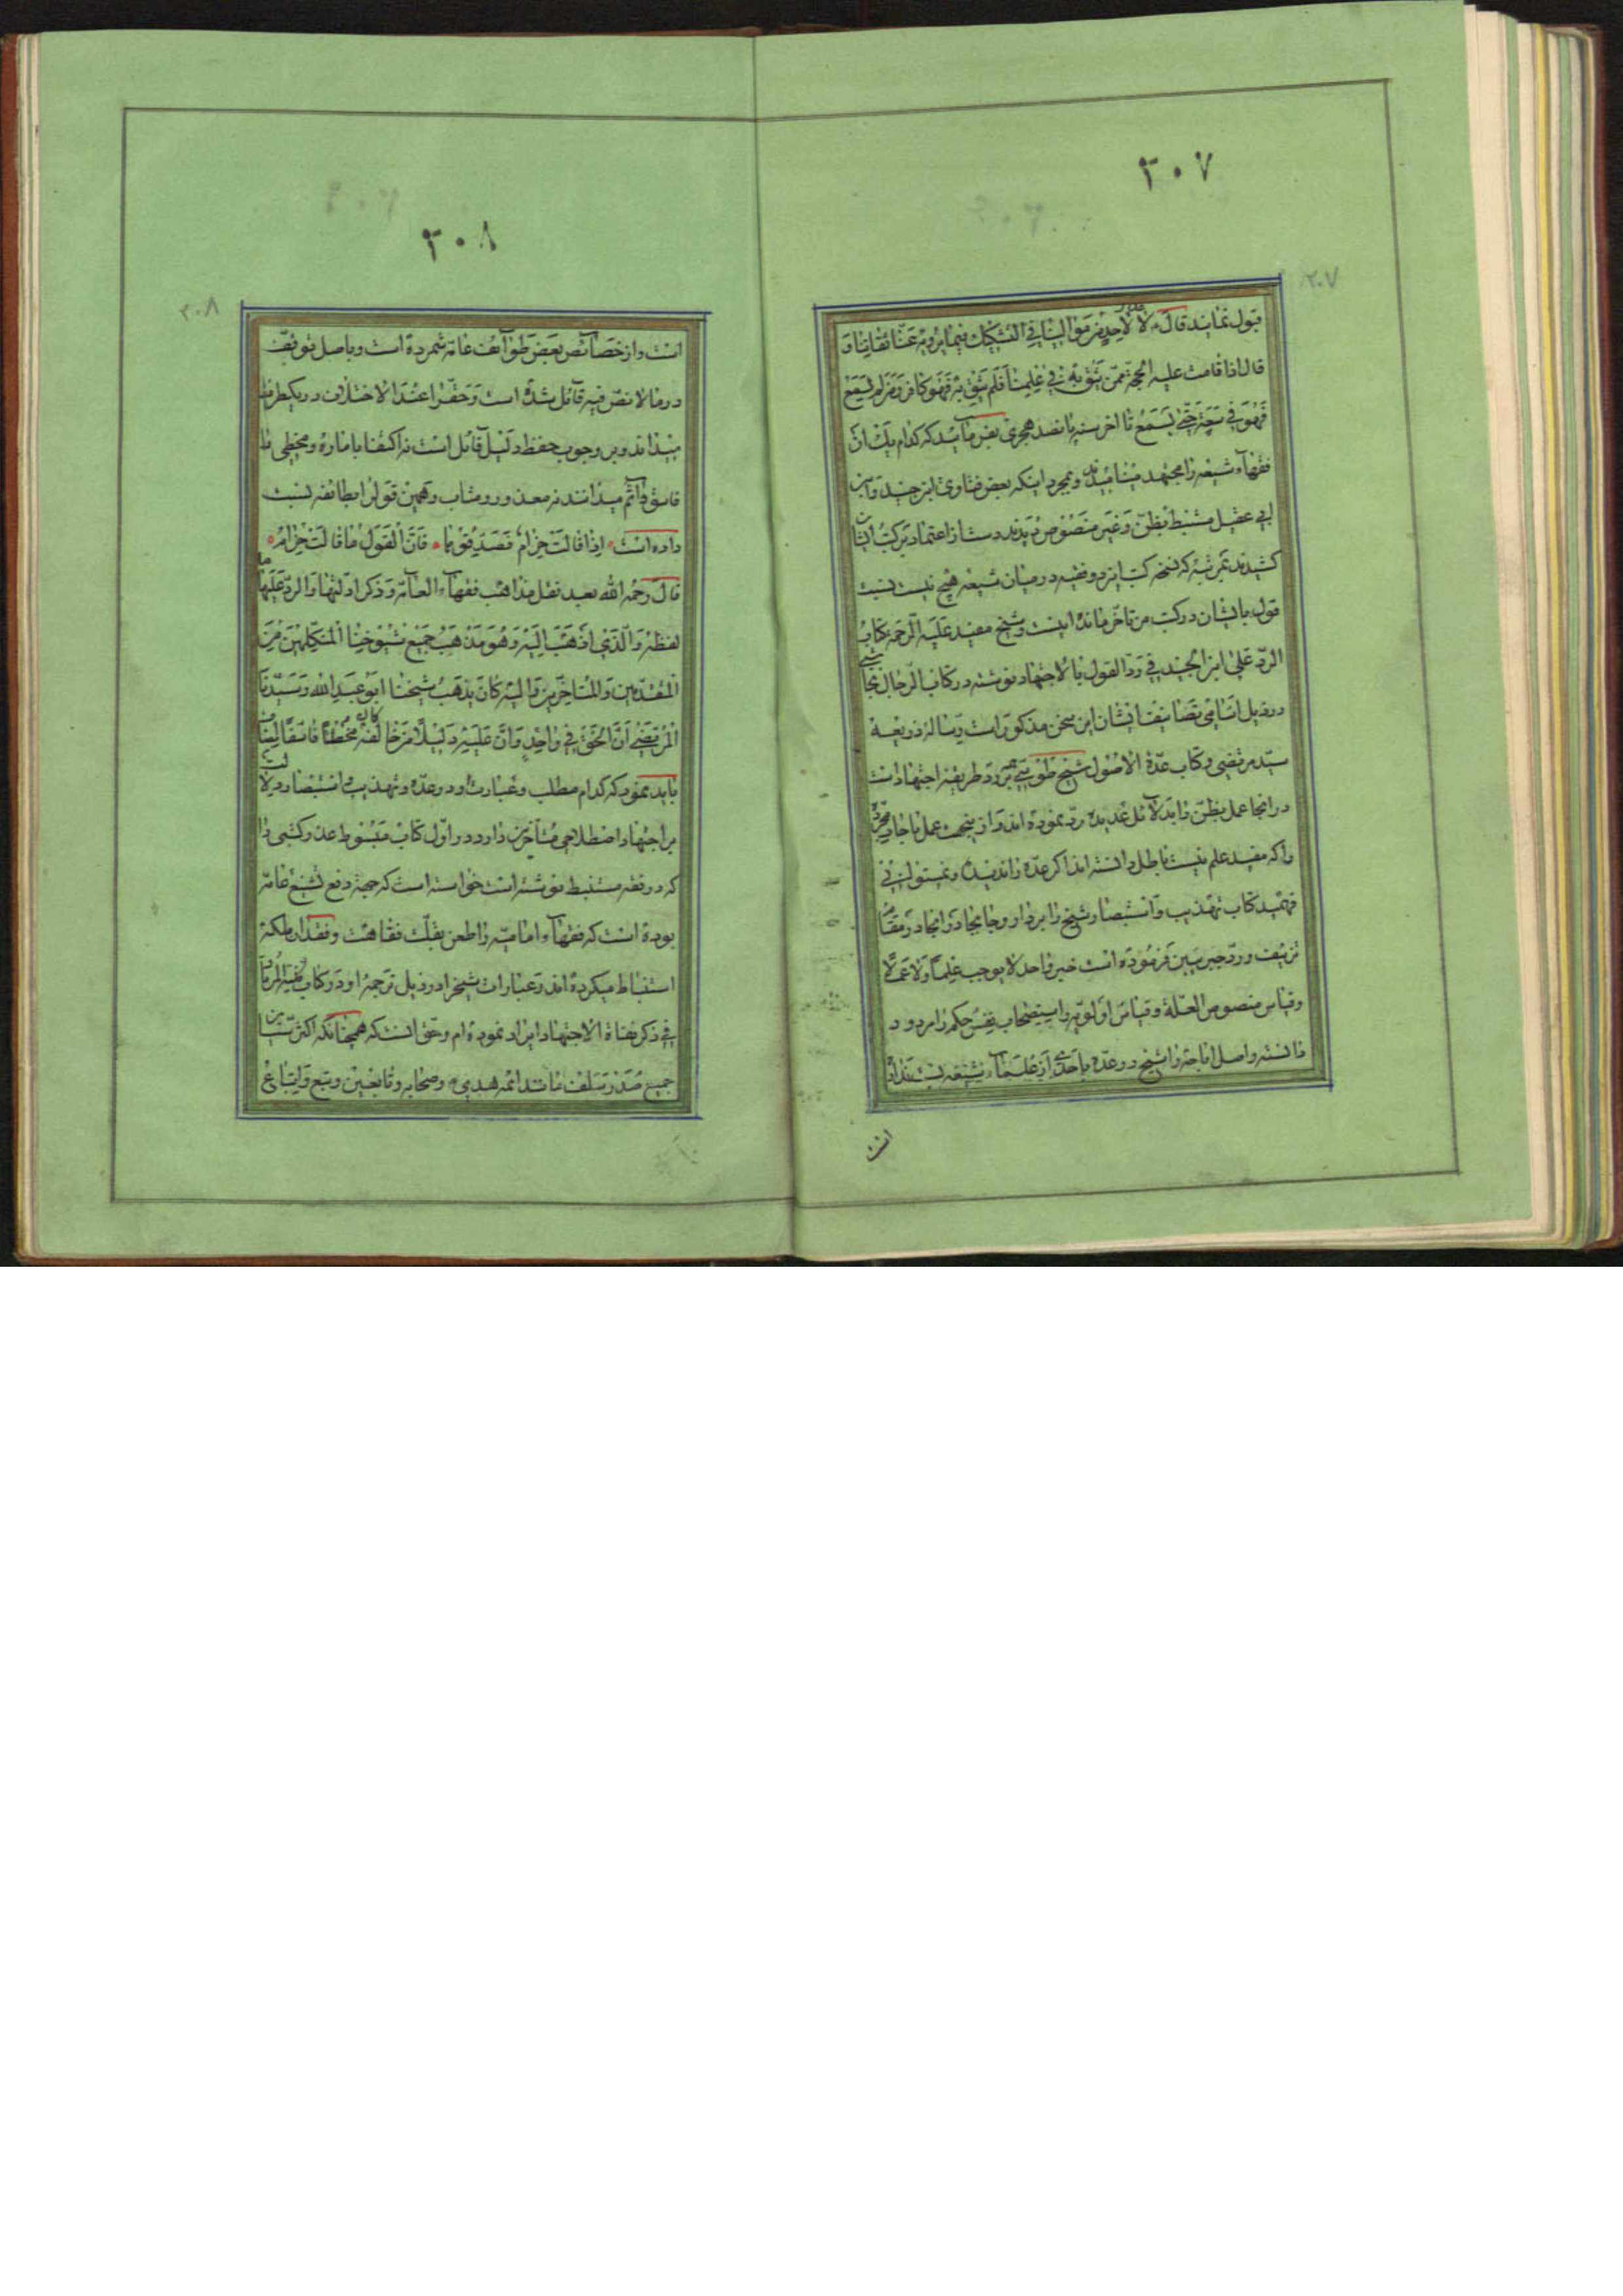 ۲۰۷
۲۰۷
قبول نمایند قال ع لا عذر لاحد من موالینا فی التشکیک فیما یرویه عنا ثقاتنا و
قال اذا قامت علیه الحجة ممن یثق به فی علمنا فلم یثق به فهو کافر و من لم یسمع
فهو فی سعة حتی یسمع تا آخر سنه پانصد هجری بفرمائید که کدام یک از
فقهآء شیعه را مجتهد مینامیدند و بمجرد اینکه بعض فتاوی ابن جنید و ابن
ابی عقیل مستنبط بظن و غیر منصوص دیدند دست از اعتماد بر کتب ایشان
کشیدند بمرتبه که نسخه کتب این دو فقیه در میان شیعه هیچ نیست نسبت
قول بایشان در کتب من تأخر مانده است و شیخ مفید علیه الرحمه کتاب
الرد علی ابن الجنید فی رد القول بالاجتهاد نوشته در کتاب الرجال نجاشی
در ذیل اسامی تصانیف ایشان این سخن مذکور است و رساله ذریعه
سید مرتضی و کتاب عدة الاصول شیخ طوسی هم بر رد طریقه اجتهاد است
در آنجا عمل بظن را بدلائل عدیده رد نموده اند و از ینجهت عمل باخبار مجرده
را که مفید علم نیست باطل دانسته اند اگر عده را ندیدی و نمیتوانی
فهمید کتاب تهذیب و استبصار شیخ را بردار و جا بجا در آنجا در مقام
تزییف و رد خبر ببین فرموده است خبر واحد لا یوجب علما و لا عملا
و قیاس منصوص العلة و قیاس اولویه و استصحاب نفس حکم را مردود
دانسته و اصل اباحه را شیخ در عده باحدی از علمآء شیعه نسبت نداده
است
۲۰۸
۲۰۸
است و از خصآئص بعض طوآئف عامه شمرده است و باصل توقف
در ما لا نص فیه قائل شده است و حق را عند الاختلاف در یکطرف
میداند و بر وجوب حفظ دلیل قآئل است نه اکتفا بامارة و مخطی را
فاسق و آثم میدانند نه معذور و مثاب و همین قول را بطائفه نسبت
داده است * اذا قالت حزام فصدقوها * فان القول ما قالت حزام *
قال رحمه الله بعید نقل مذاهب فقهآء العامه و ذکر ادلتها و الرد علیها ما
لفظه و الذی اذهب الیه و هو مذهب جمیع شیوخنا المتکلمین من
المتقدمین و المتاخرین و الیه کان یذهب شیخنا ابو عبد الله و سیدنا
المرتضی ان الحق فی واحد و ان علیه دلیلا من خالفه کان مخطئا فاسقا
باید نمود که کدام مطلب و عبارت او در عده و تهذیب و استبصار دلالت
بر اجتهاد اصطلاحی متأخرین دارد در اول کتاب مبسوط عذر کتبی را
که در فقه مستنبط نوشته است خواسته است که جهة دفع تشنیع عامه
بوده است که فقهآء امامیه را طعن بقلت فقاهت و فقدان ملکه
استنباط میکرده اند و عبارات شیخ را در ذیل ترجمه او در کتاب
فی ذکر نفاة الاجتهاد ایراد نموده ام و حق است که همچنانکه
جمیع صدر سلف مانند ائمه هدی ع و صحابه و تابعین و تبع و اتباع